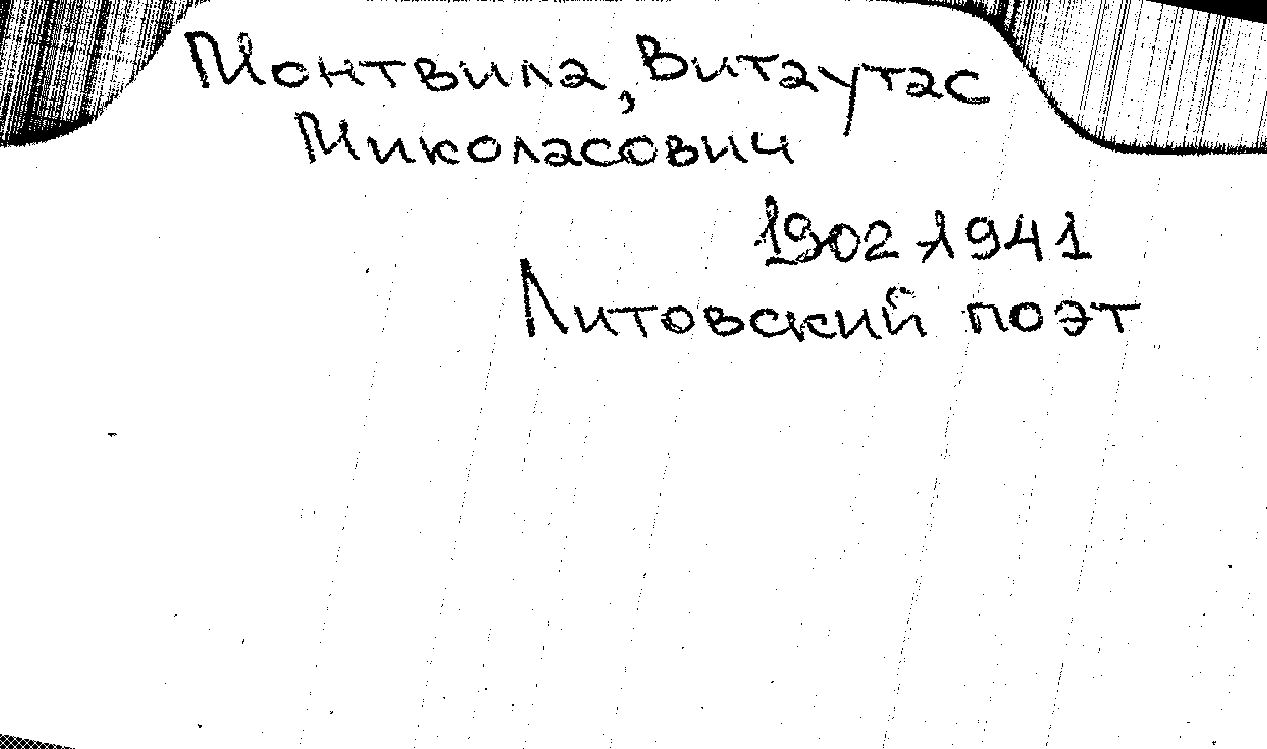 Монтвила, Витаутас
Миколасович
1902-1941
Литовский поэт